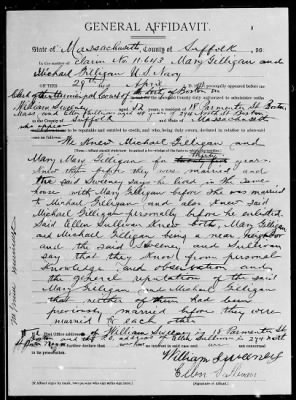 GENERAL AFFIDAVIT.
State of Massachusetts, County of Suffolk, ss:
In the matter of claim No. 11.643 Mary Gilligan and
Michael Gilligan U S Navy
ON THIS 29th day of April
Clerk of the Municipal Court of Boston
William Sweeney aged 52 18 Parmenter St Boston
Mass. and Ellen Sullivan 274 North St Boston
Suffolk Massachusetts
well known to be reputable and entitled to credit, and who, being duly sworn, declared in relation to aforesaid
case as follows:
We Knew Michael Gilligan and
Mary Mary Gilligan for thirty years.
Knew them before they were married and
the said Sweeney says he lived in the same
house with Mary Gilligan before she was married
to Michael Gilligan and also knew said
Michael Gilligan personally before he enlisted.
Said Ellen Sullivan Knew both, Mary Gilligan
and Michael Gilligan being a near neighbor
and the said Sweeney, and Sullivan
say that they Know from personal
Knowledge and observation and
the general reputation of the said
Mary Gilligan and Michael Gilligan
that neither of them had been
previously married before they were
married to each other.
Post Office address of William Sweeney is 18 Parmenter St
Boston and the P.O. address of Ellen Sullivan is 274 North
St Boston Mass
further declare that no interest in said case
William Sweeney
Ellen Sullivan
(If Affiant signs by mark, two persons who can write sign here.)
(Signature of Affiant.)